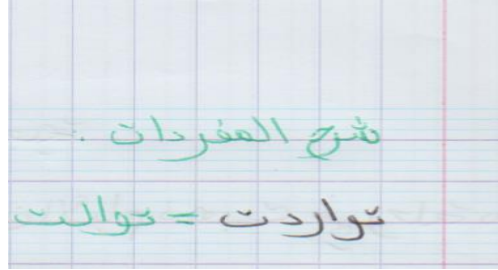 شرح المفردات .
تواردت = توالت